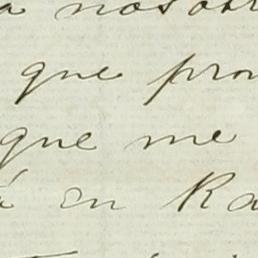 a nosotr
que pron
que me
á en Ra